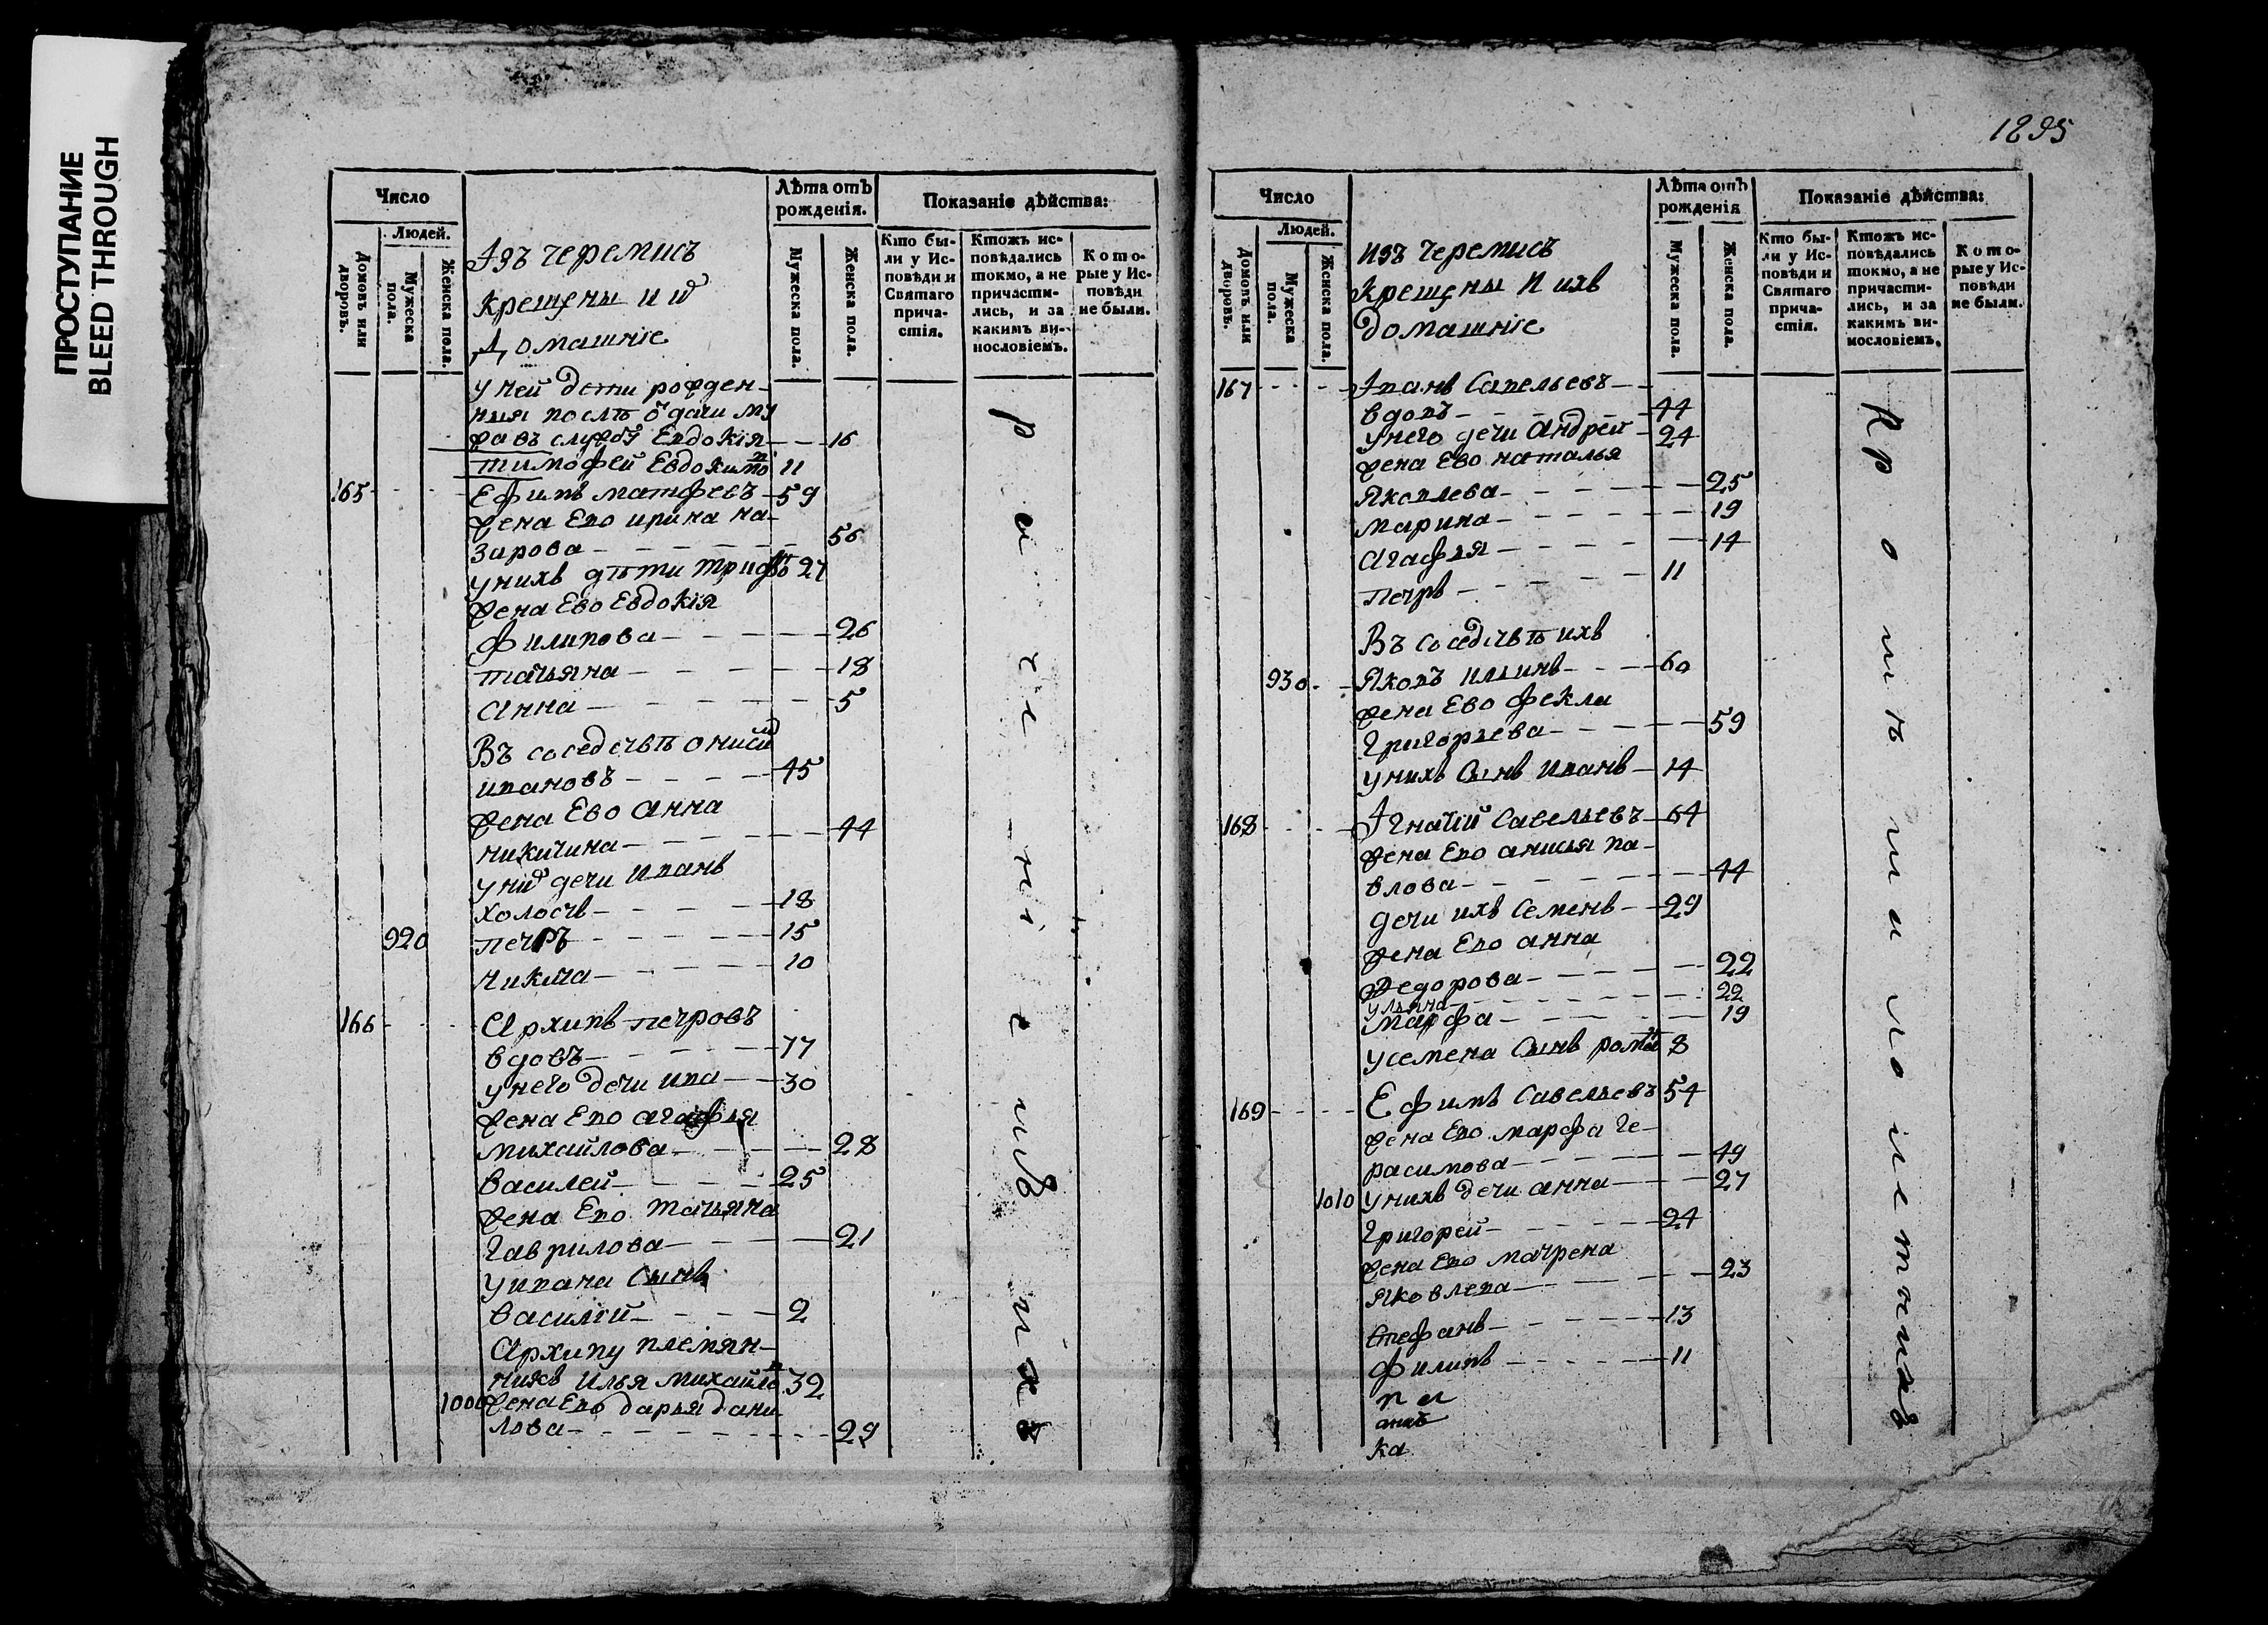 ПРОСТУПАНИЕ
BLEED THROUGH
Число
Людей.
Домовъ или дворовъ.
Мужеска пола.
Женска пола.
Изъ черемисъ
крещены и их
домашніе
Лѣта отъ рожденія.
Мужеска пола.
Женска пола.
Показаніе дѣйства:
Кто были у Исповѣди и Святаго причастія.
Ктожъ исповѣдались токмо, а не причастились, и за какимъ винословіемъ.
Которые у Исповѣди не были.
у ней дети рожден-
ныя послѣ
жа въ службу Евдокія 16
тимофей Евдокимо 11
165 Ефимъ матфевъ 59
жена Ево ирина на-
зарова 56
у нихъ дѣти трифо 27
жена Ево Евдокія
филипова 26
татьяна 18
анна 5
Въ соседствѣ
ивановъ 45
жена Ево анна
никитина 44
у них дети иванъ
холостъ 18
920 петръ 15
никита 10
166 Архипъ петровъ
вдовъ 77
у него дети ива 30
жена Ево агафья
михайлова 28
василей 25
жена Ево татьяна
гаврилова 21
у ивана сынъ
василей 2
Архипу племян-
никъ илья михайло 32
1000 жена Ево дарья дани
лова 29
1895
Число
Людей.
Домовъ или дворовъ.
Мужеска пола.
Женска пола.
изъ черемисъ
крещены и ихъ
домашніе
Лѣта отъ рожденія
Мужеска пола.
Женска пола.
Показаніе дѣйства:
Кто были у Исповѣди и Святаго причастія.
Ктожъ исповѣдались токмо, а не причастились, и за какимъ винословіемъ.
Которые у Исповѣди не были.
167 Иванъ Савельевъ
вдовъ 44
у него дети андрей 24
жена Ево наталья
Яковлева 25
марина 19
агафья 14
петръ 11
Въ соседствѣ ихъ
930 Яковъ ильинъ 60
жена Ево фекла
григорьева 59
у нихъ сынъ иванъ 14
168 Игнатій савельевъ 64
жена Ево анисья па-
влова 44
дети ихъ семенъ 29
жена Ево анна
федорова 22
ульяна 22
марфа 19
у семена сынъ 8
169 Ефимъ савельевъ 54
жена Ево марфа ге-
расимова 49
1010 у нихъ дети анна 27
григорей 24
жена Ево матрена
Яковлева 23
стефанъ 13
филипъ 11